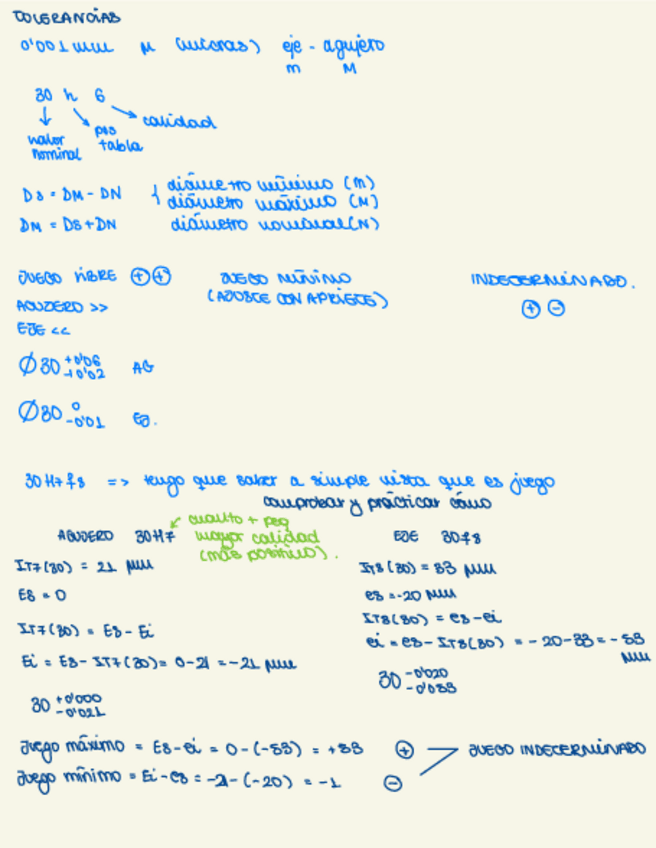 TOLERANCIAS
0'001 mm μ (micras) eje - agujero
m M
30 h 6
valor nominal pos tabla calidad
DS = DM - DN { diámetro mínimo (m)
diámetro máximo (M)
DM = DS + DN diámetro nominal (N)
JUEGO LIBRE ⊕⊕ JUEGO MÍNIMO INDETERMINADO.
AGUJERO >> (AJUSTE CON APRIETE) ⊕ ⊖
EJE <<
Ø30 +0'06 +0'02 AG
Ø30 0 -0'01 EJ.
30 H7 f8 => tengo que saber a simple vista que es juego
comprobar y prácticar cómo
cuanto + peq
AGUJERO 30H7 mayor calidad EJE 30f8
(más positivo).
IT7(30) = 21 μm IT8(30) = 33 μm
ES = 0 es = -20 μm
IT8(30) = es - ei
IT7(30) = ES - Ei
ei = es - IT8(30) = -20-33 = -53 μm
Ei = ES - IT7(30) = 0-21 = -21 μm
30 -0'020 -0'053
30 +0'000 -0'021
Juego máximo = ES - ei = 0 - (-53) = +53 ⊕ JUEGO INDETERMINADO
Juego mínimo = Ei - es = -21 - (-20) = -1 ⊖